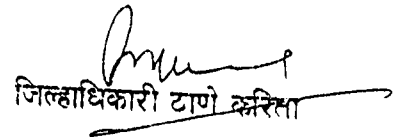 जिल्हाधिकारी ठाणे करिता